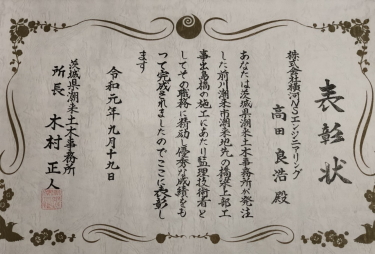 表彰状
株式会社横河NSエンジニアリング
高田良浩殿
あなたは茨城県潮来土木事務所が発注
した前川潮来市潮来地先の橋梁上部工
事出島橋の施工にあたり監理技術者と
してその職務に精励し優秀な成績をも
って完成されましたのでここに表彰し
ます
令和元年九月十九日
茨城県潮来土木事務所
所長 木村正人